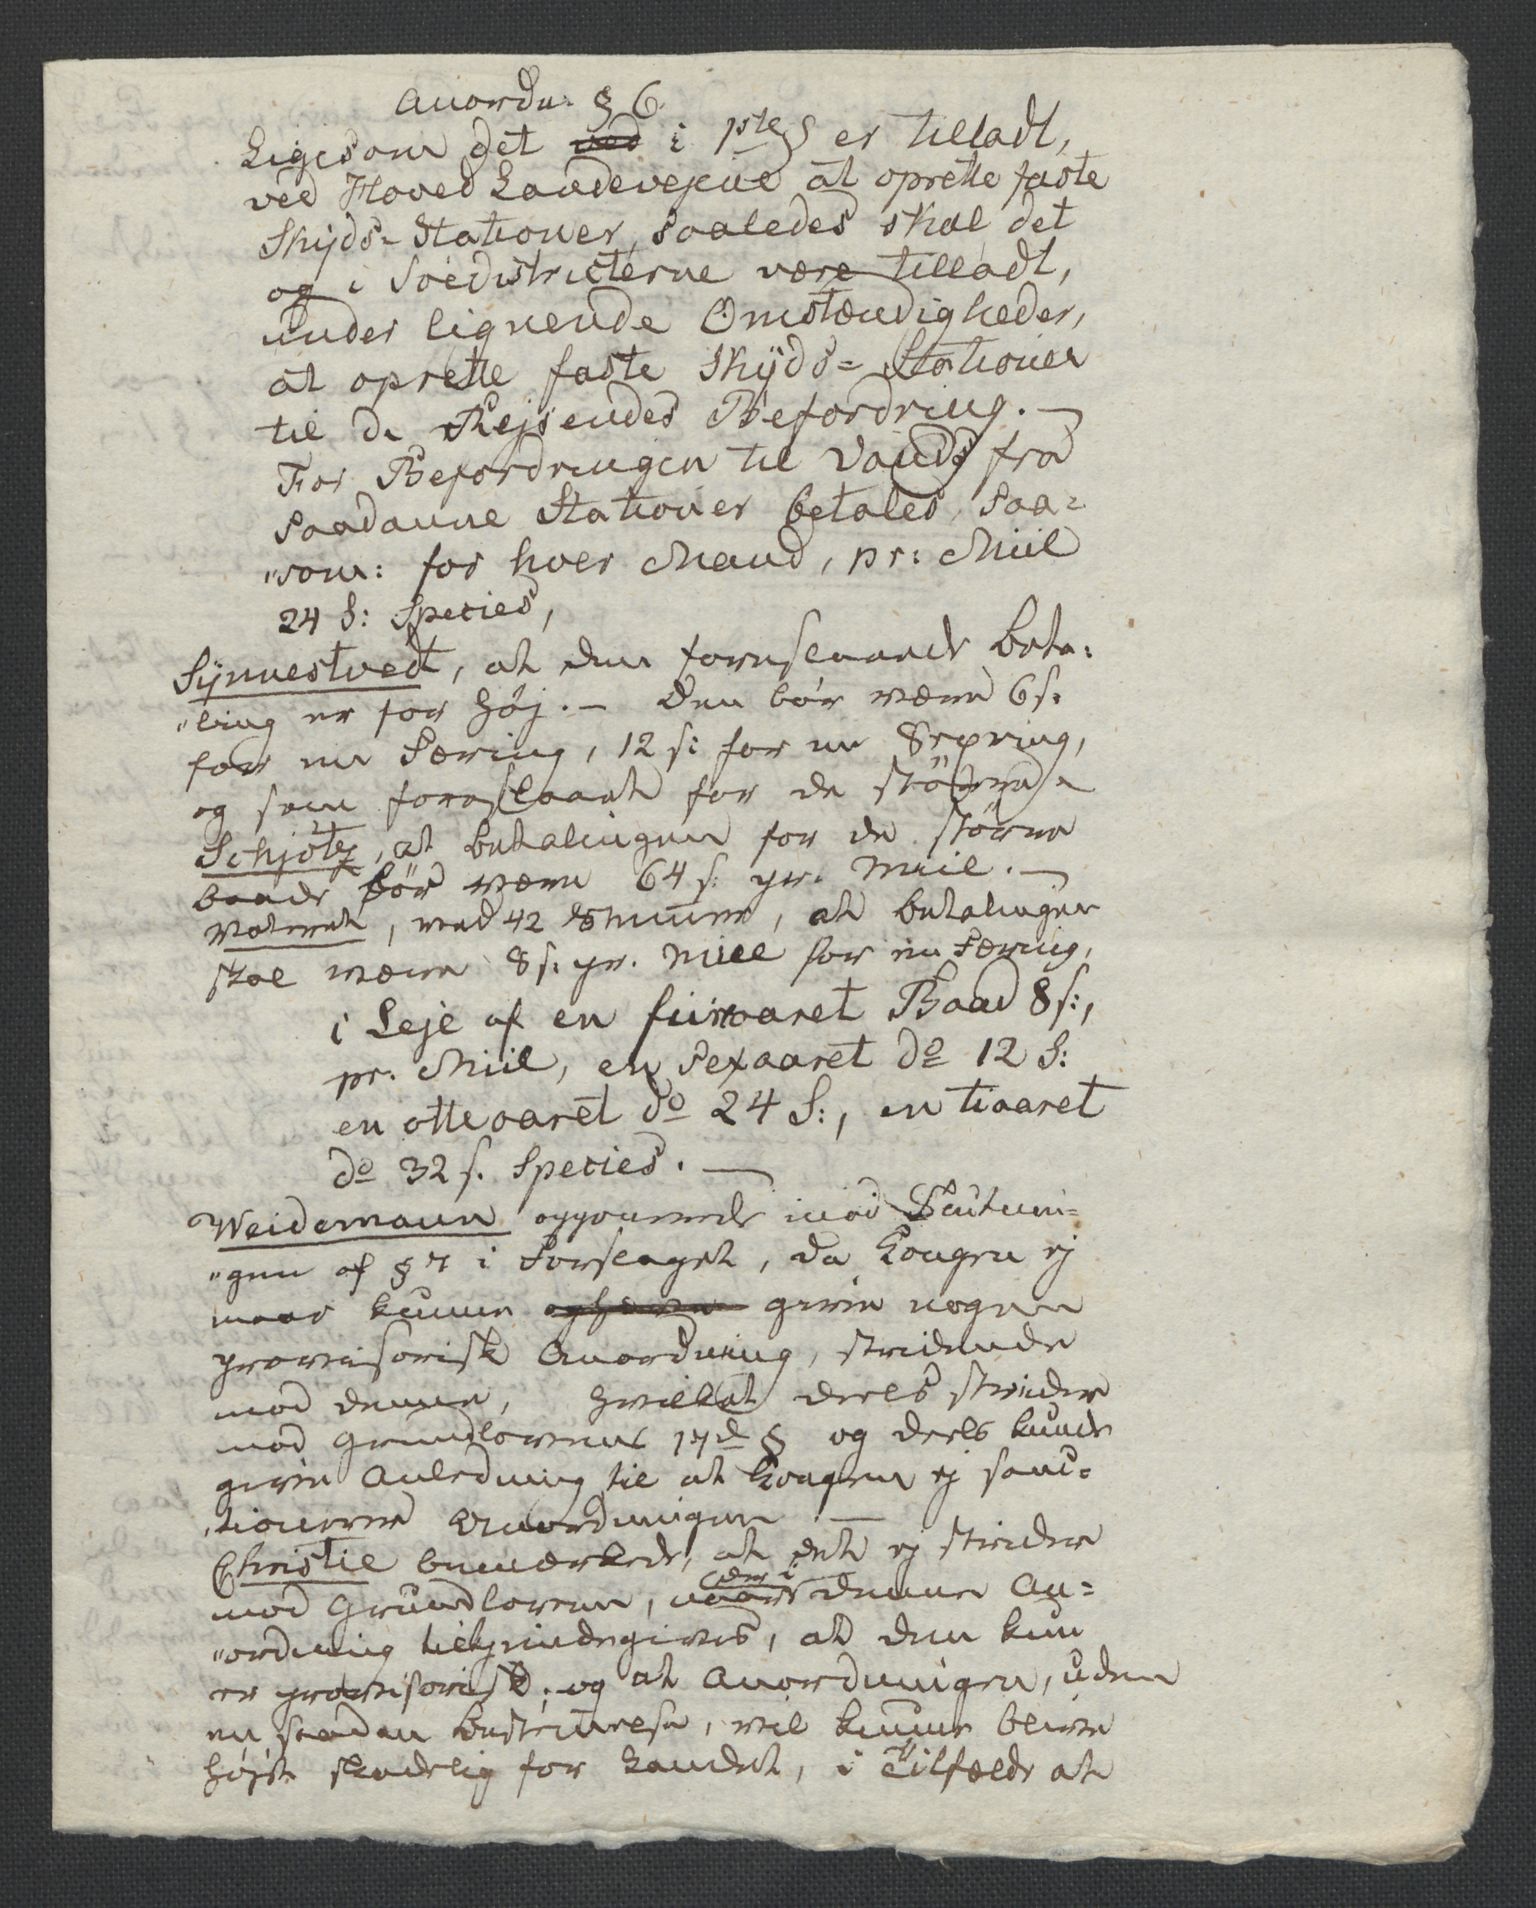 Anordn: § 6.
Ligesom det ved i 1ste § er tilladt,
ved Hoved Landevejene at oprette faste
Skyds-Stationer, saaledes skal det
og i Søedistricterne være tilladt,
under lignende Omstændigheder,
at oprette faste Skyds-Stationer
til de Rejsendes Befordring. —
For Befordringen til Vands fra
saadanne Stationer betales, saa-
"som: for hver Mand, pr: Miil
24 s: Species,
Synnestvedt, at den foreslaaede beta-
"ling er for høj. — Den bør være 6 s:
for en Færing, 12 s: for en Sexring,
og som foreslaaet for de større.
Schjøtz, at betalingen for de større
baade bør være 64 s: pr. Miil. —
Voteret, med 42 Stemmer, at betalingen
skal være 8 s. pr. Miil for en Færing,
i Leje af en fiiraaret Baad 8 s:,
pr. Miil, en Sexaaret do 12 s:
en otteaaret do 24 s:, en tiaaret
do 32 s. Species. —
Weidemann opponerede mod Slutnin-
"gen af § 7 i Forslaget, da Kongen ej
maae kunne ophæve give nogen
provisorisk Anordning, stridende
mod denne, hvilket deels strider
mod Grundlovens 17d § og deels kunde
give Anledning til at Kongen ej sanc-
"tionerer Anordningen —
Christie bemærkede, at det ej strider
mod Grundloven, naar der i denne An-
"ordning tilkjendegives, at den kun
er provisorisk; og at Anordningen, uden
en saadan bestemmelse, vil kunne blive
højst skadelig for Landet, i Tilfælde at